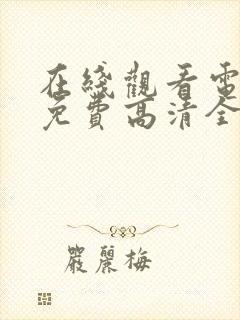 在綫觀看電
免費高清全
嚴麗梅